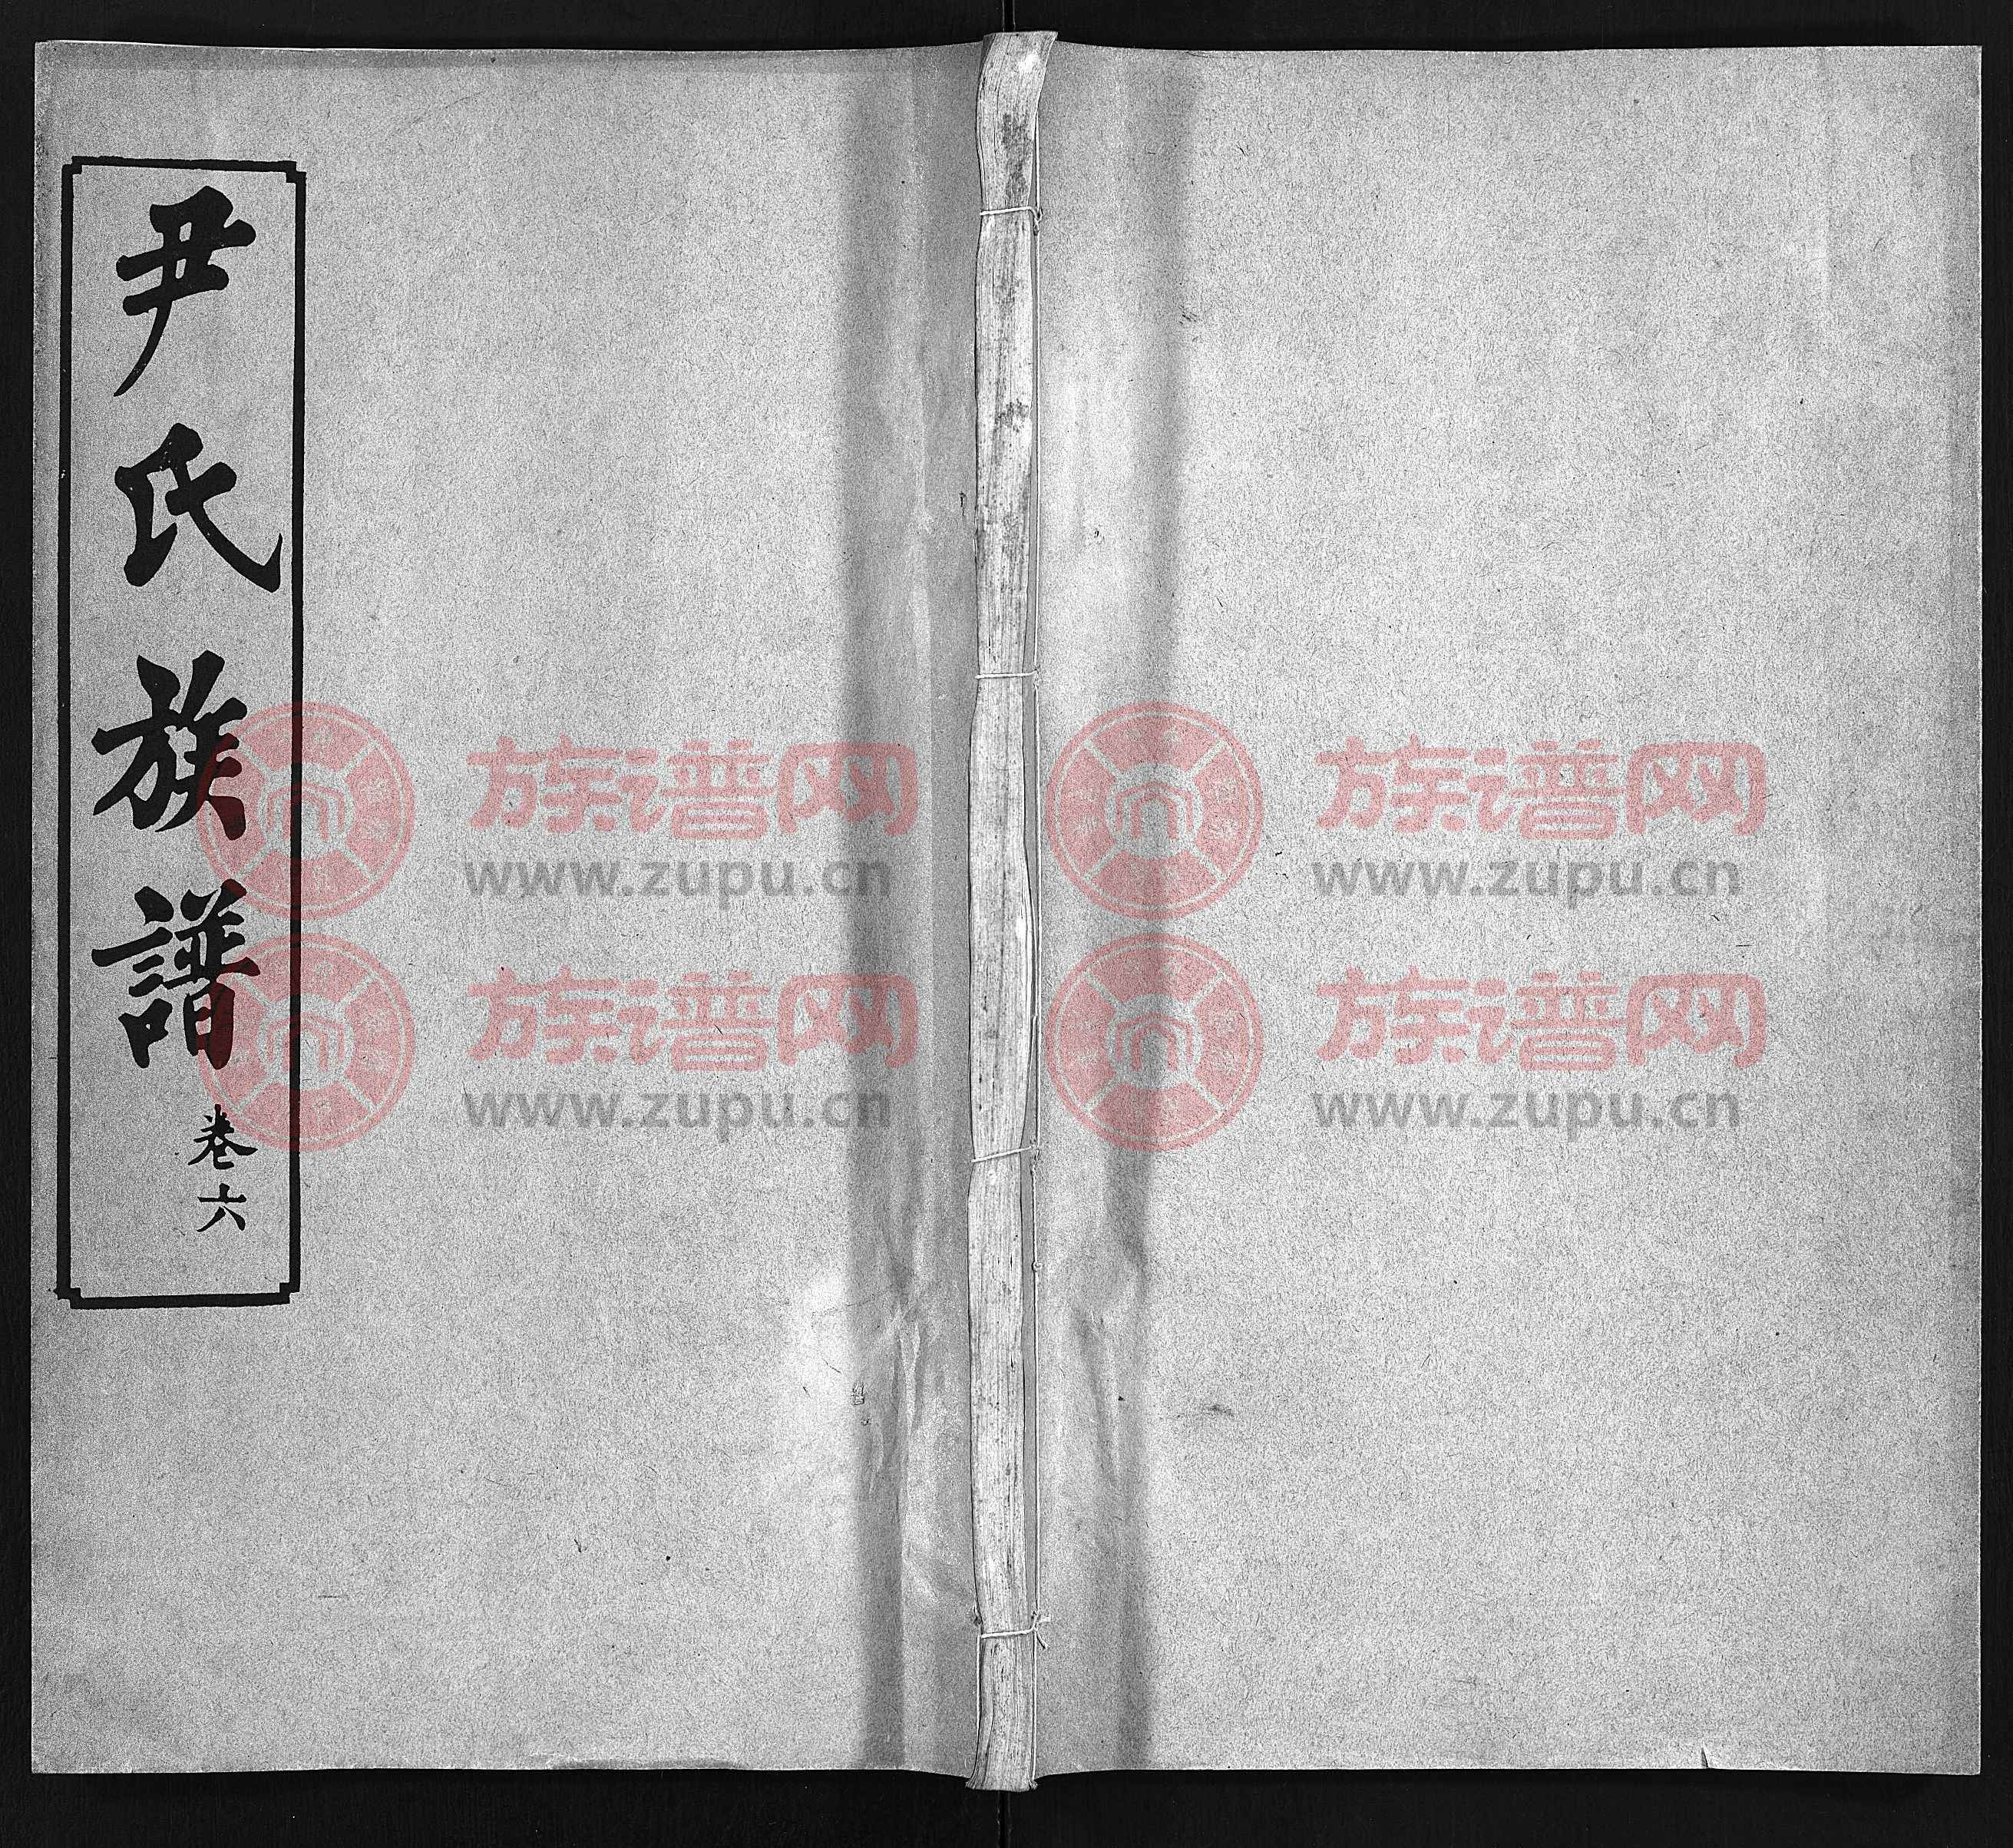 尹氏族譜
卷六
族谱网
www.zupu.cn
族谱网
www.zupu.cn
族谱网
www.zupu.cn
族谱网
www.zupu.cn